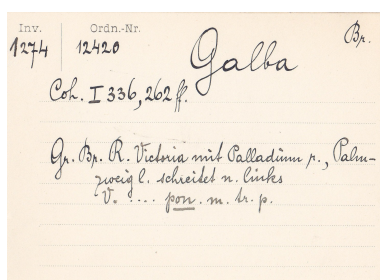 Inv. Ordn.-Nr. Br.
1274 12420 Galba
Coh. I 336, 262 ff.
Gr. Br. R. Victoria mit Palladium r., Palm-
zweig l. schreitet n. links
V. .... pon. m. tr. p.